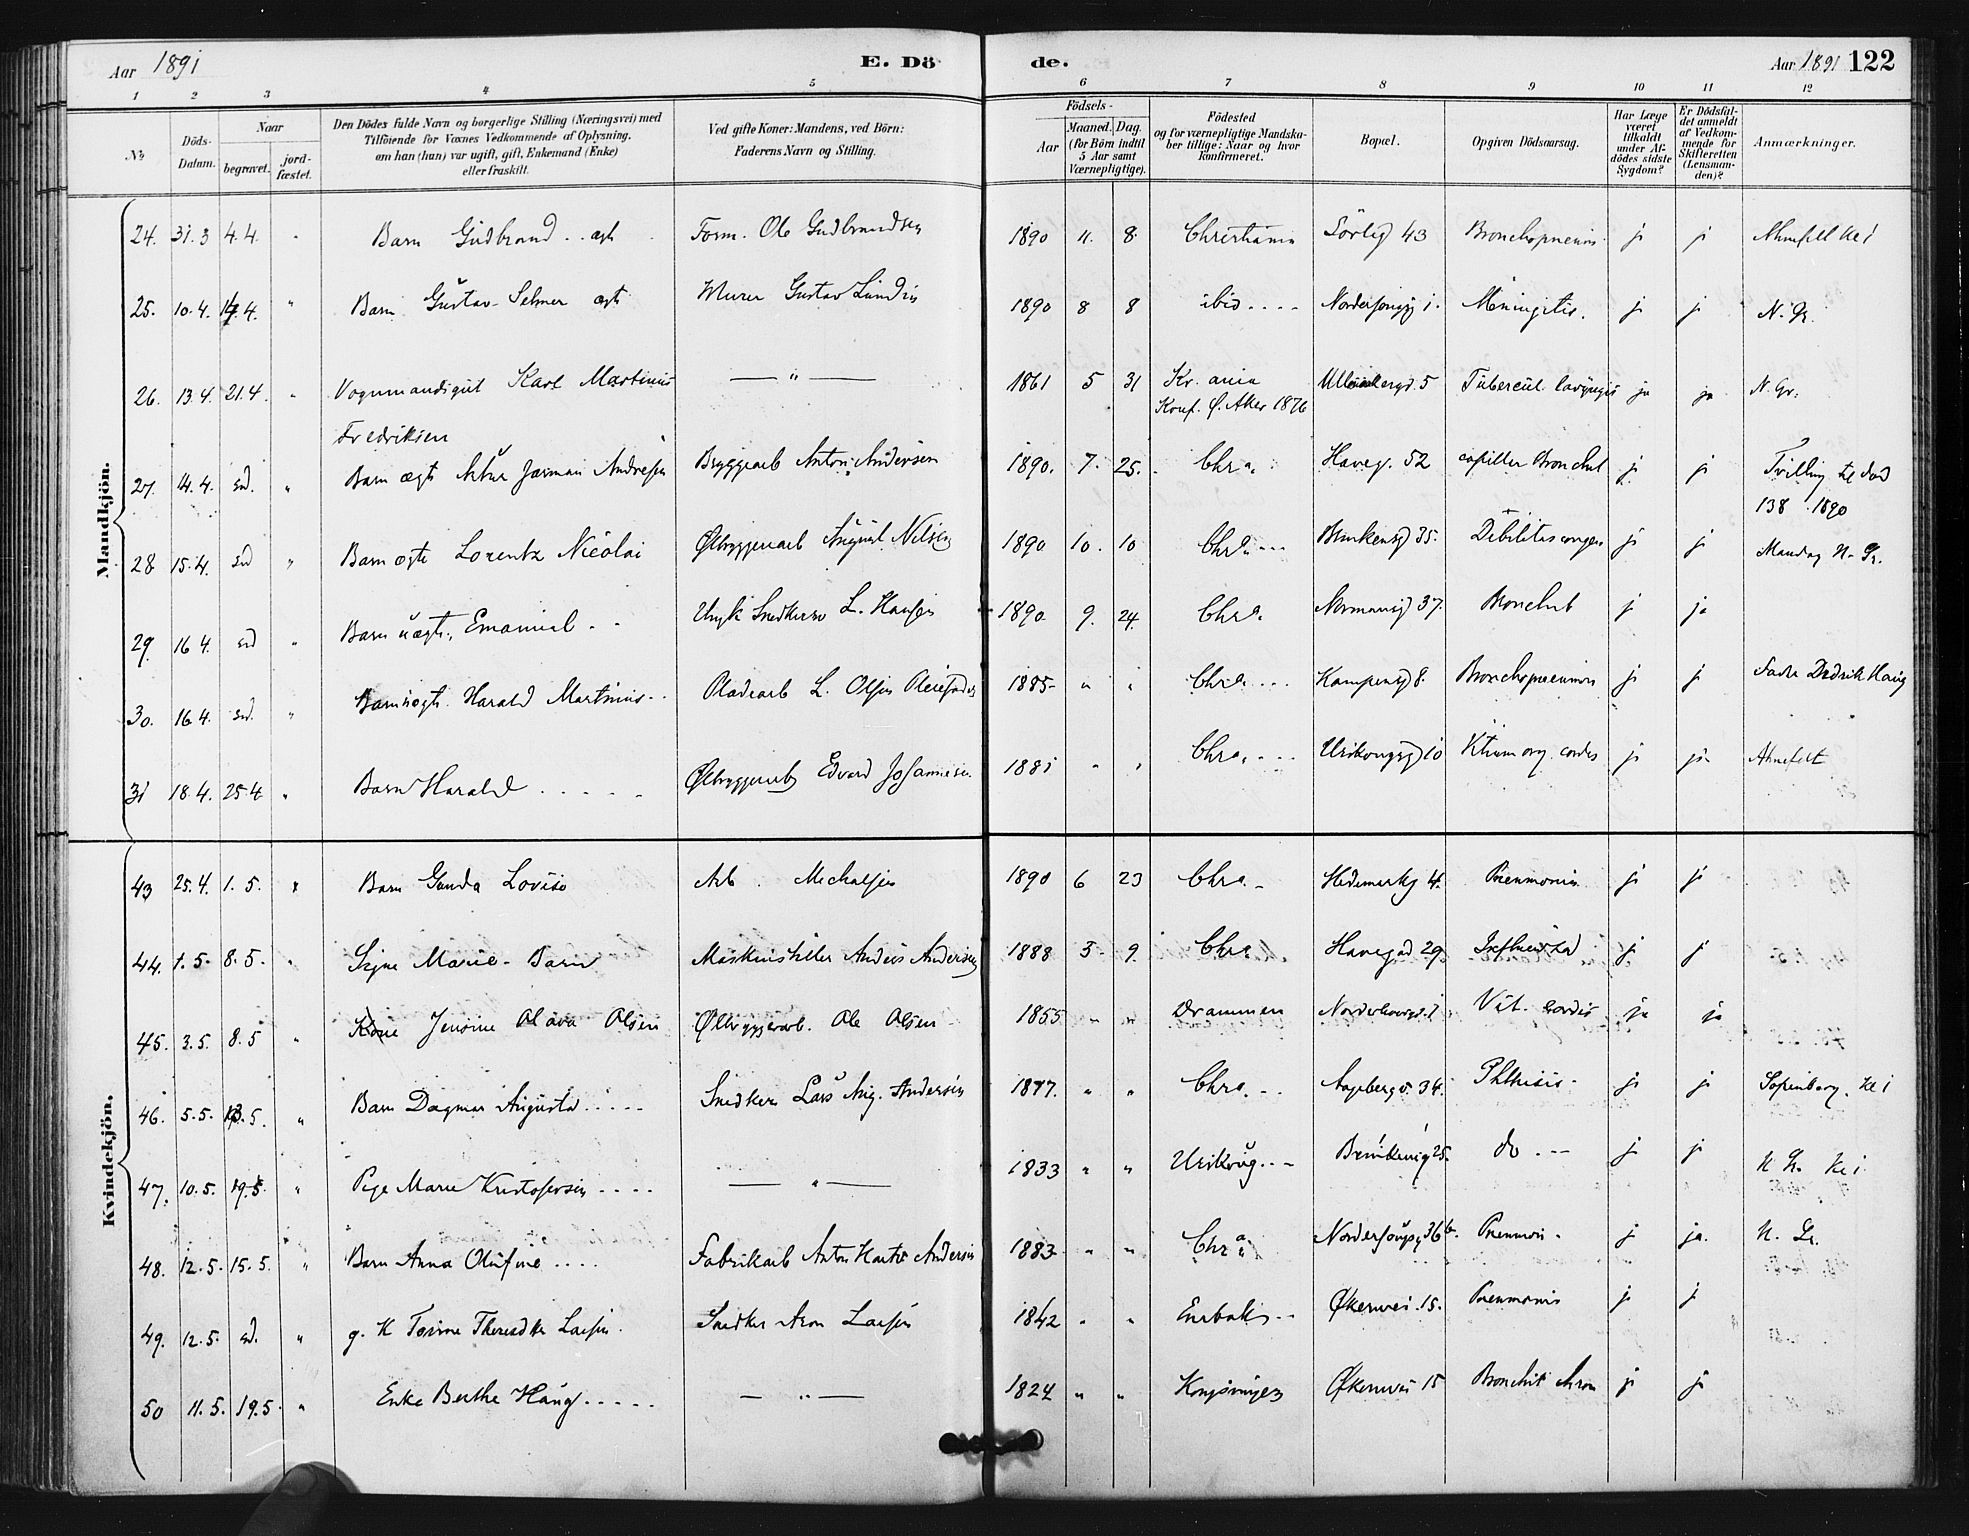 Aar 1891
E. Döde.
Aar 1891 122
1 2 3 4 5 6 7 8 9 10 11 12
No
Döds-Datum.
Naar
begravet.
jordfæstet.
Den Dödes fulde Navn og borgerlige Stilling (Næringsvei) med
Tilföiende for Voxnes Vedkommende af Oplysning,
om han (hun) var ugift, gift, Enkemand (Enke)
eller fraskilt.
Ved gifte Koner: Mandens, ved Börn:
Faderens Navn og Stilling.
Födsels-
Aar
Maaned. Dag.
(for Börn indtil
5 Aar samt
Værnepligtige).
Födested
og for værnepligtige Mandskaber tillige: Naar og hvor
konfirmeret.
Bopæl.
Opgiven Dödsaarsag.
Har Læge
været
tilkaldt
under Afdödes sidste
Sygdom?
Er Dödsfaldet anmeldt
af Vedkommende for
Skifteretten
(Lensmanden)?
Anmærkninger.
Mandkjön.
24. 31.3 4.4. " Barn Gudbrand .. ægte Form. Ole Gudbrandsen 1890 11. 8. Christiania Sörlig 43 Bronchopneum. j j Ahnefelt Kl 1
25. 10.4. 4. " Barn Gustav Selmer ægte Murer Gustav Lundin 1890 8 8 ibid .... 1. Meningitis. j j N. Gr.
26. 13.4. 21.4. " Vognmandsgut Karl Martinius — " — 1861 5 31 Kr.ania 5 Tubercul. laryngis ja ja N. Gr.
Fredriksen Konf. Ø. Aker 1876
27. 14.4. sd. " Barn ægte Artur Andresen Bryggearb Anton Andersen 1890. 7. 25. Chr.a Haveg. 52 capillær Bronchit j j Tvilling til död
138 1890
28 15.4. sd " Barn ægte Lorentz Nicolai Ølbryggerarb August Nilsen 1890 10. 10 Chr.a ... 35. Debilitas congen j j Mandag N. Gr.
29. 16 4. sd " Barn uægte, Emanuel .. L. Hansen 1890 9. 24. Chr.a Normansg 37. Bronchit j ja
30. 16.4. sd. " Barn uægte. Harald Martinius .. Pladearb L. Olsen 1885 " " Chr.a ... Kampensg 8. Bronchopneumon j j Didrik Haug
31 18.4. 25.4 " Barn Harald ..... Ølbryggerarb Edvard Johannesen 1881 " " Chr.a ... 10 Vitium org. cordis j ja Ahnefelt
Kvindekjön.
43 25.4. 1.5. " Barn Gunda Lovise Arb. Michalsen 1890 6 23 Chr.a Hedemarksg 4. Pneumonia j j
44. 1.5. 8.5. " Signe Marie - Barn Maskinstiller Anders Andersen 1888 3 9. Chr.a Havegad 29. Influenza j j
45. 3.5. 8.5 " Kone Jensine Olava Olsen Ølbryggerarb. Ole Olsen 1855 " " Drammen Vit. cordis ja ja
46. 5.5. 5. " Barn Dagmar Augusta ..... Snedker Lars Aug. Andersen 1877. " " Chr.a Aageberg v. 34. Phthisis. j j Sofienberg. Kl 1
47. 10.5. 19.5. " Pige Marie Kristofersen .... — " — 1833 " " Urskoug ... 25. do. j j N Gr. Kl 1
48. 12.5. 15.5. " Barn Anna Olufine .... Fabrikarb Anton Andersen 1883 " " Chr.a 36 b. Pneumon. j ja. N. Gr.
49. 12.5. sd. " g. K Larsen. Snedker Aron Larsen 1842 " " Enebak .. Økernvei 15. Pneumonia j j
50 11.5. 19.5. " Enke Berthe Haug ..... — " — 1824 " " Kongsvinger Økernvei 15 Bronchit chron j j